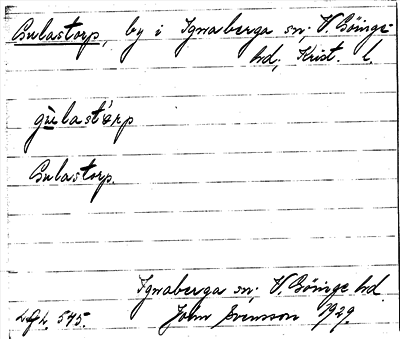 Gulastorp, by i Ignaberga sn; V. Göinge
hd; Krist. l.
gùlastårp
Gulastorp.
Ignaberga sn; V. Göinge hd.
LGL. 545. John Svensson 1929.